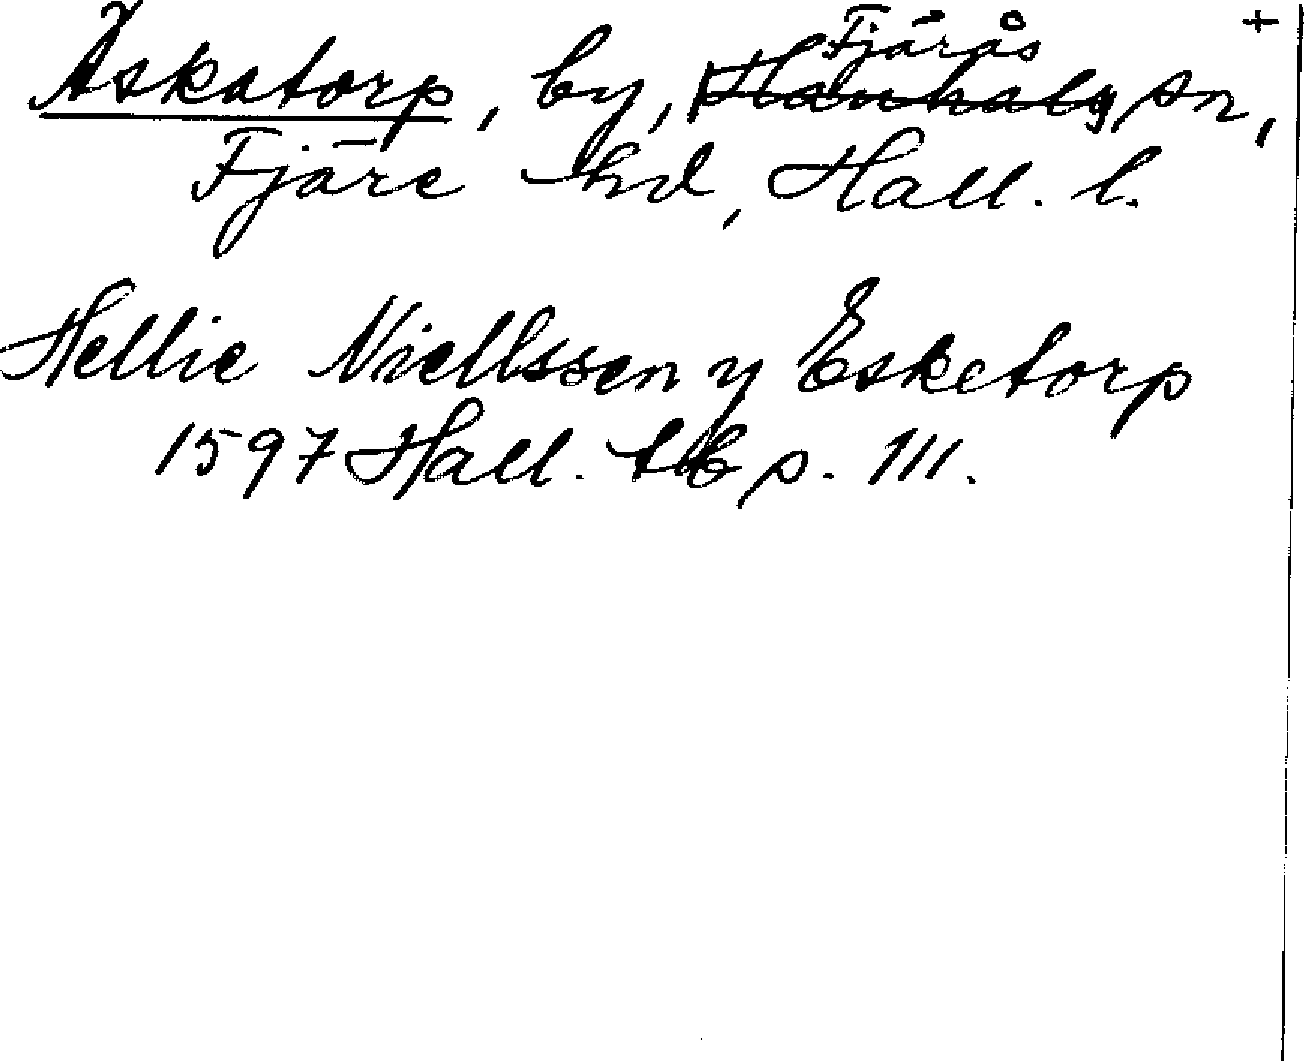 +
Äskatorp, by, Fjärås Hanhalg sn,
Fjäre hd, Hall. l.
Hellie Niellssen y Esketorp
1597 Hall. tb p. 111.